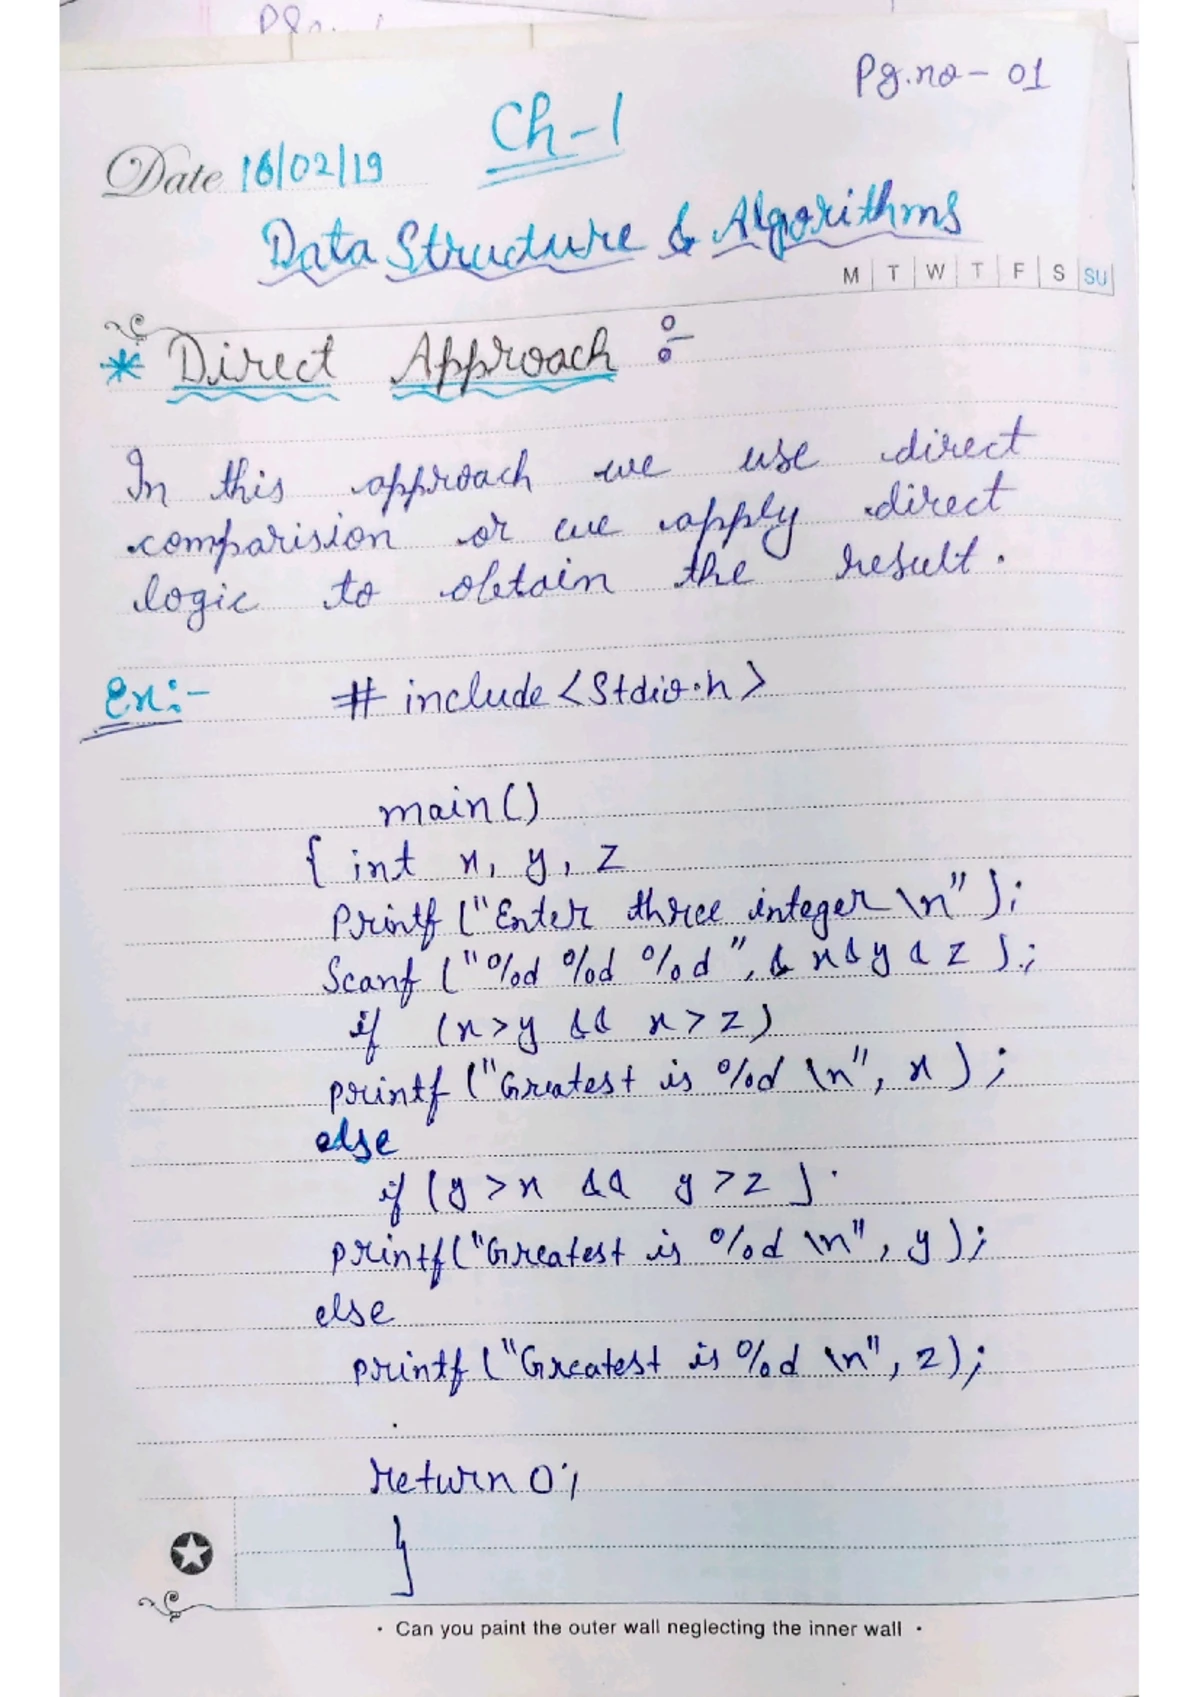 Pg.no - 01
Ch-1
Date 16/02/19
Data Structure & Algorithms
M T W T F S SU
* Direct Approach :-
In this approach we use direct
comparision or we apply direct
logic to obtain the result.
Ex:- # include <Stdio.h>
main()
{ int x, y, z
Printf ("Enter three integer \n");
Scanf ("%d %d %d", & x & y & z );
if (x>y && x>z)
printf ("Greatest is %d \n", x );
else
if (y >x && y >z )
printf("Greatest is %d \n", y );
else
printf ("Greatest is %d \n", z);
return 0;
}
• Can you paint the outer wall neglecting the inner wall •